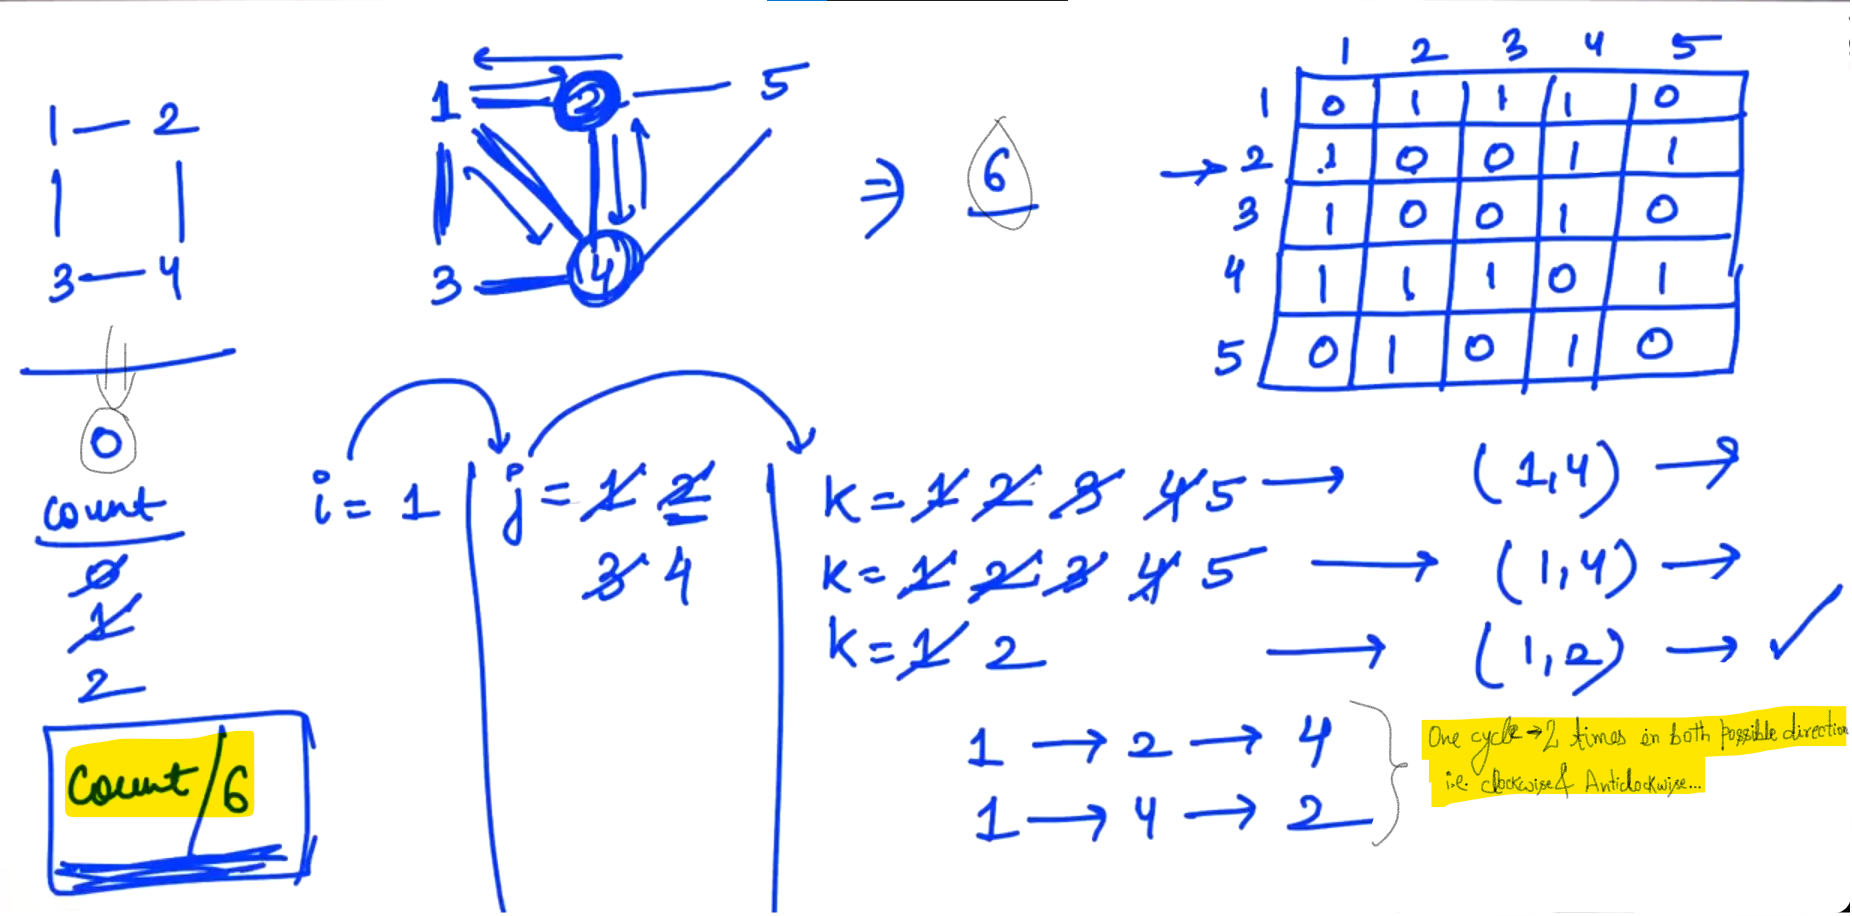 1 — 2
3 — 4
0
count
0
1
2
count/6
1 2 5
3 4
⇒ 6
1 2 3 4 5
1 0 1 1 1 0
→ 2 1 0 0 1 1
3 1 0 0 1 0
4 1 1 1 0 1
5 0 1 0 1 0
i = 1 j = 1 2 K = 1 2 3 4 5 → (1,4) →
3 4 K = 1 2 3 4 5 → (1,4) →
K = 1 2 → (1,2) → ✓
1 → 2 → 4
1 → 4 → 2
One cycle → 2 times in both possible direction
i.e. clockwise & Anticlockwise...